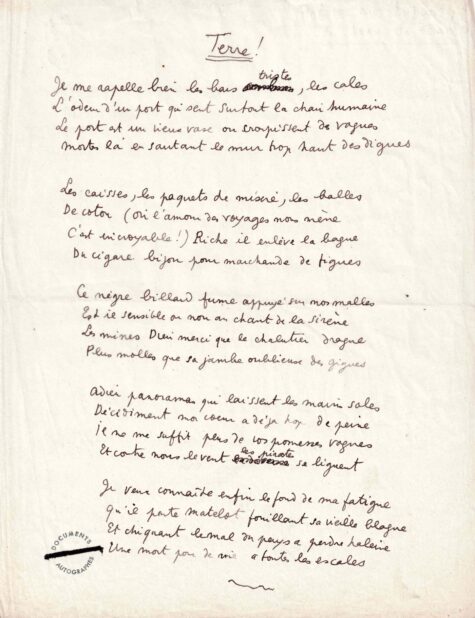 Terre !
Je me rapelle bien les bars tristes, les cales
L'odeur d'un port qui sent surtout la chair humaine
Le port est un vieux vase ou croupissent de vagues
Mortes là en sautant le mur trop haut des digues
Les caisses, les paquets de misère, les balles
De coton (où l'amour des voyages nous mène
C'est incroyable !) Riche il enlève la bague
Du cigare bijou pour marchande de figues
Ce nègre billard fume appuyé sur nos malles
Est il sensible ou non au chant de la sirène
Les mines Dieu merci que le chalutier drague
Plus molles que sa jambe oublieuse des gigues
Adieu panoramas qui laissent les mains sales
Décidément mon coeur a déjà trop de peine
Je ne me suffit plus de vos promesses vagues
Et contre nous le vent les pirates se liguent
Je veux connaître enfin le fond de ma fatigue
Qu'il parte matelot fouillant sa vieille blague
Et chiquant le mal du pays a perdre haleine
Une mort pour de voir a toutes les escales
DOCUMENTS
AUTOGRAPHES